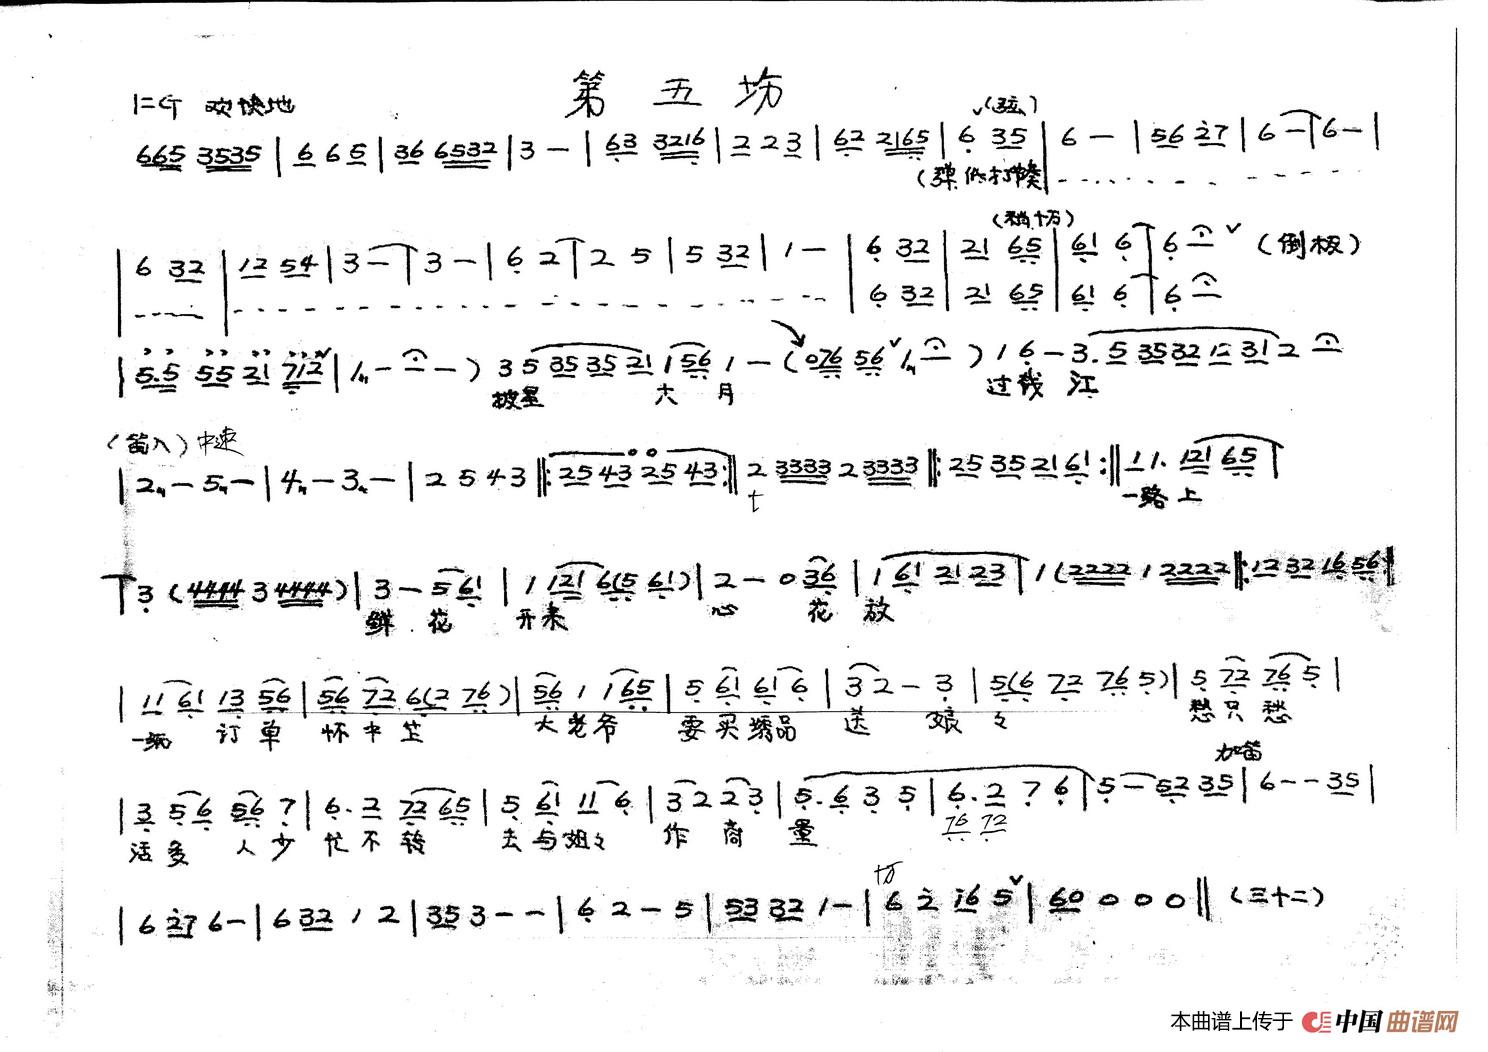 第五场
1=G 欢快地
(弦)
665 3535 | 6 6 5 | 36 6532 | 3 — | 63 3216 | 2 2 3 | 62 2165 | 6 35 | 6 — | 56 27 | 6 — | 6 — |
6 32 | 12 54 | 3 — | 3 — | 6 2 | 2 5 | 5 32 | 1 — | 6 32 | 21 65 | 61 6 | 6 — (倒板)
6 32 | 21 65 | 61 6 | 6 —
| 5.5 55 21 712 | 1 — — — ) 3 5 35 35 21 1 56 1 — ( 076 56 1 — ) 1 6 — 3. 5 35 32 12 31 2 —
披星 六 月 过钱 江
(笛入) 中速
| 2 — 5 — | 4 — 3 — | 2 5 4 3 ‖: 25 43 25 43 :‖ 2 3333 2 3333 ‖: 25 35 21 61 :‖ 11. 121 65 |
一路 上
3 (4444 3 4444) | 3 — 5 61 | 1 121 6(5 61) | 2 — 0 36 | 1 61 21 23 | 1 (2222 1 2222 ‖: 12 32 16 56 ‖
鲜 花 开来 心 花 放
| 11 61 13 56 | 56 72 6(2 76) | 56 1 1 65 | 5 61 61 6 | 3 2 — 3 | 5(6 72 76 5) | 5 72 76 5 |
订 单 怀中 大老爷 要买绣品 送 娘 愁只愁
加笛
| 3 56 56 7 | 6. 2 72 65 | 5 61 11 6 | 3 2 2 3 | 5. 6 3 5 | 6. 2 7 6 | 5 — 52 35 | 6 — — 35 |
76 72
活多 人少 忙不转 去与姐 作 商 量
| 6 27 6 — | 6 32 1 2 | 35 3 — — | 6 2 — 5 | 53 32 1 — | 6 2 16 5 | 60 0 0 0 ‖ (三十二)
本曲谱上传于 中国曲谱网